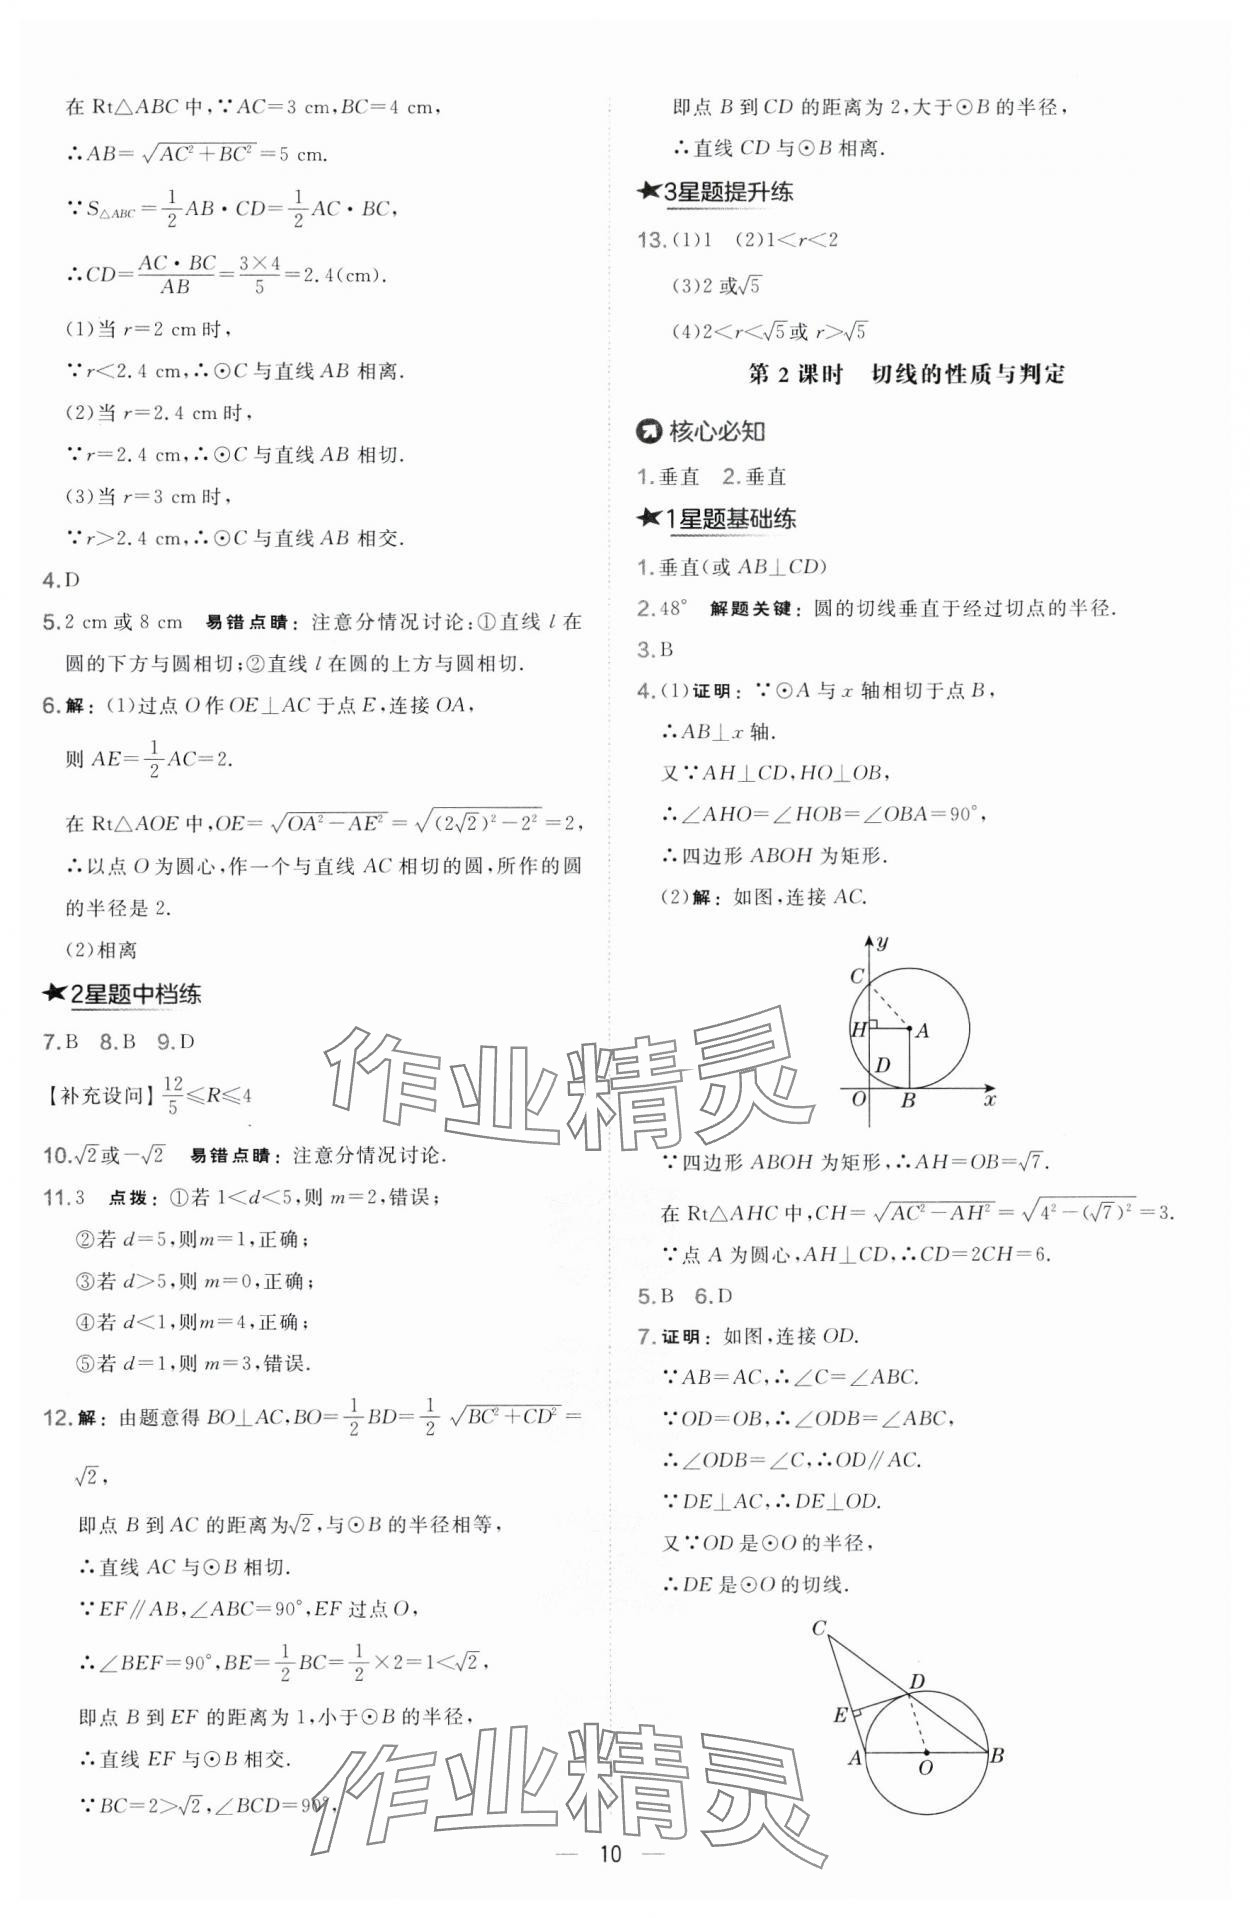 在 Rt△ABC 中,∵AC=3 cm,BC=4 cm,
∴AB=√(AC²+BC²)=5 cm.
∵S△ABC=1/2 AB·CD=1/2 AC·BC,
∴CD=AC·BC/AB=3×4/5=2.4(cm).
(1)当 r=2 cm 时,
∵r<2.4 cm,∴⊙C 与直线 AB 相离.
(2)当 r=2.4 cm 时,
∵r=2.4 cm,∴⊙C 与直线 AB 相切.
(3)当 r=3 cm 时,
∵r>2.4 cm,∴⊙C 与直线 AB 相交.
4.D
5.2 cm 或 8 cm 易错点睛:注意分情况讨论:①直线 l 在
圆的下方与圆相切;②直线 l 在圆的上方与圆相切.
6.解:(1)过点 O 作 OE⊥AC 于点 E,连接 OA,
则 AE=1/2 AC=2.
在 Rt△AOE 中,OE=√(OA²-AE²)=√((2√2)²-2²)=2,
∴以点 O 为圆心,作一个与直线 AC 相切的圆,所作的圆
的半径是 2.
(2)相离
★2星题中档练
7.B 8.B 9.D
【补充设问】12/5≤R≤4
10.√2或-√2 易错点睛:注意分情况讨论.
11.3 点拨:①若 1<d<5,则 m=2,错误;
②若 d=5,则m=1,正确;
③若 d>5,则 m=0,正确;
④若 d<1,则m=4,正确;
⑤若 d=1,则 m=3,错误.
12.解:由题意得 BO⊥AC,BO=1/2 BD=1/2 √(BC²+CD²)=
√2,
即点 B 到 AC 的距离为√2,与⊙B 的半径相等,
∴直线 AC 与⊙B 相切.
∵EF∥AB,∠ABC=90°,EF 过点 O,
∴∠BEF=90°,BE=1/2 BC=1/2×2=1<√2,
即点 B 到 EF 的距离为 1,小于⊙B 的半径,
∴直线 EF 与⊙B 相交.
∵BC=2>√2,∠BCD=90°,
即点 B 到 CD 的距离为 2,大于⊙B 的半径,
∴直线 CD 与⊙B 相离.
★3星题提升练
13.(1)1 (2)1<r<2
(3)2 或√5
(4)2<r<√5或 r>√5
第 2 课时 切线的性质与判定
核心必知
1.垂直 2.垂直
★1星题基础练
1.垂直(或 AB⊥CD)
2.48° 解题关键:圆的切线垂直于经过切点的半径.
3.B
4.(1)证明:∵⊙A 与 x 轴相切于点 B,
∴AB⊥x 轴.
又∵AH⊥CD,HO⊥OB,
∴∠AHO=∠HOB=∠OBA=90°,
∴四边形 ABOH 为矩形.
(2)解:如图,连接 AC.
y
C
H
A
D
O
B
x
∵四边形 ABOH 为矩形,∴AH=OB=√7.
在 Rt△AHC 中,CH=√(AC²-AH²)=√(4²-(√7)²)=3.
∵点 A 为圆心,AH⊥CD,∴CD=2CH=6.
5.B 6.D
7.证明:如图,连接 OD.
∵AB=AC,∴∠C=∠ABC.
∵OD=OB,∴∠ODB=∠ABC,
∴∠ODB=∠C,∴OD∥AC.
∵DE⊥AC,∴DE⊥OD.
又∵OD 是⊙O 的半径,
∴DE 是⊙O 的切线.
C
D
E
A
O
B
作业精灵
作业精灵
10